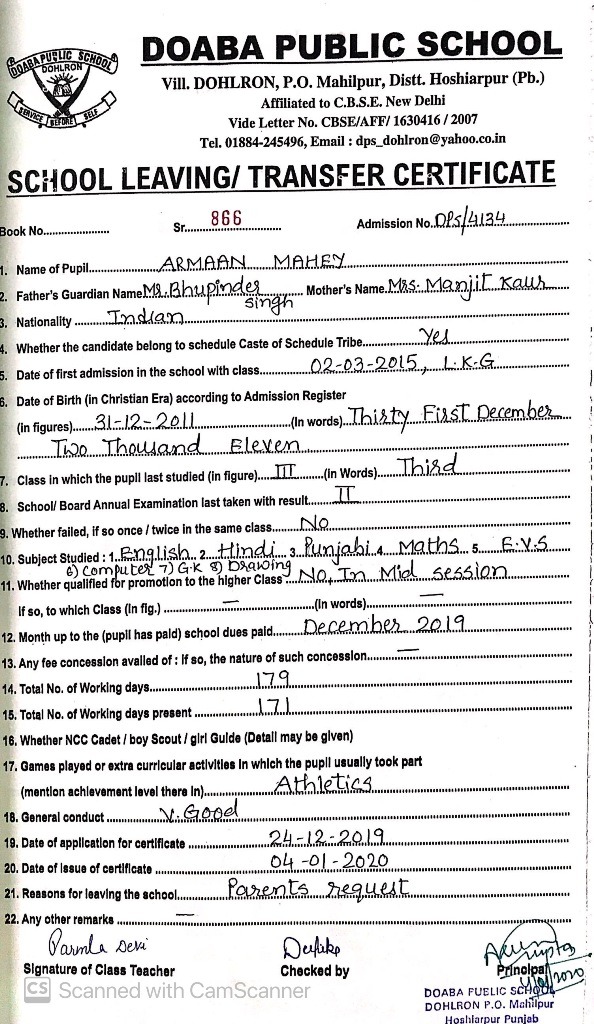 DOABA PUBLIC SCHOOL
DOHLRON
SERVICE BEFORE SELF
DOABA PUBLIC SCHOOL
Vill. DOHLRON, P.O. Mahilpur, Distt. Hoshiarpur (Pb.)
Affiliated to C.B.S.E. New Delhi
Vide Letter No. CBSE/AFF/ 1630416 / 2007
Tel. 01884-245496, Email : dps_dohlron@yahoo.co.in
SCHOOL LEAVING/ TRANSFER CERTIFICATE
Book No..................... Sr. 866 Admission No. DPS/4134
1. Name of Pupil ARMAAN MAHEY
2. Father's Guardian Name Mr. Bhupinder Singh Mother's Name Mrs. Manjit Kaur
3. Nationality Indian
4. Whether the candidate belong to schedule Caste of Schedule Tribe Yes
5. Date of first admission in the school with class 02-03-2015, L.K.G
6. Date of Birth (in Christian Era) according to Admission Register
(in figures) 31-12-2011 (In words) Thirty First December
Two Thousand Eleven
7. Class in which the pupil last studied (in figure) III (in Words) Third
8. School/ Board Annual Examination last taken with result II
9. Whether failed, if so once / twice in the same class No
10. Subject Studied : 1. English 2. Hindi 3. Punjabi 4. Maths 5. E.V.S
6) Computer 7) G.K 8) Drawing
11. Whether qualified for promotion to the higher Class No, In Mid session
If so, to which Class (In fig.) — (In words) —
12. Month up to the (pupil has paid) school dues paid December 2019
13. Any fee concession availed of : If so, the nature of such concession —
14. Total No. of Working days 179
15. Total No. of Working days present 171
16. Whether NCC Cadet / boy Scout / girl Guide (Detail may be given)
17. Games played or extra curricular activities in which the pupil usually took part
(mention achievement level there In) Athletics
18. General conduct V. Good
19. Date of application for certificate 24-12-2019
20. Date of issue of certificate 04-01-2020
21. Reasons for leaving the school Parents request
22. Any other remarks —
Parmla Devi
Signature of Class Teacher Checked by Principal
CS Scanned with CamScanner
DOABA PUBLIC SCHOOL
DOHLRON P.O. Mahilpur
Hoshiarpur Punjab